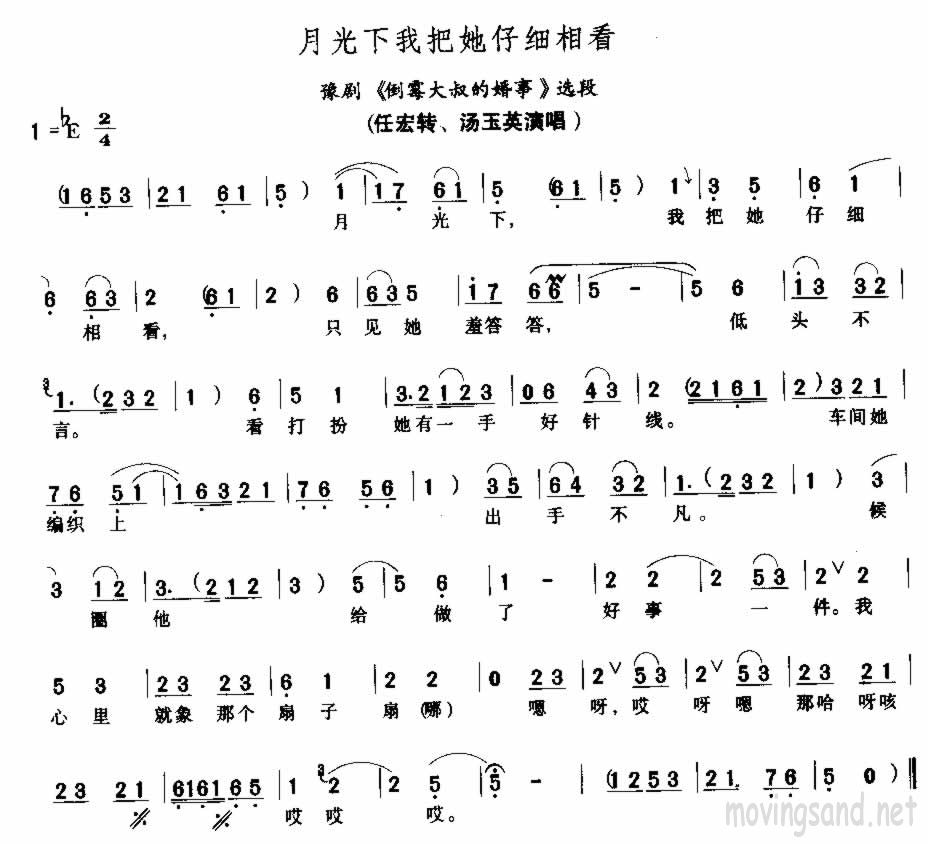 月光下我把她仔细相看
豫剧《倒霉大叔的婚事》选段
1=♭E 2/4
(任宏转、汤玉英演唱)
(1653 | 21 61 | 5) 1 | 17 61 | 5 (61 | 5) 1 | 3 5 | 6 1 |
月 光 下, 我 把 她 仔 细
6 63 | 2 (61 | 2) 635 | i7 66 | 5 - | 5 6 | i3 32 |
相 看, 只 见 她 羞答 答, 低 头 不
3 1.(232 | 1) 6 | 5 1 | 3.2123 | 06 43 | 2 (2161 | 2) 321 |
言。 看 打 扮 她有一手 好 针 线。 车间她
76 51 | 16321 | 76 56 | 1) 35 | 64 32 | 1.(232 | 1) 3 |
编织 上 出 手 不 凡。 候
3 12 | 3.(212 | 3) 5 | 5 6 | 1 - | 2 2 | 2 53 | 2 ∨ 2 |
圈 他 给 做 了 好 事 一 件。我
5 3 | 23 23 | 6 1 | 2 2 | 0 23 | 2 ∨ 53 | 2 ∨ 53 | 23 21 |
心 里 就象 那个 扇 子 扇(哪) 嗯 呀,哎 呀 嗯 那哈 呀咳
23 21 | 6161 65 | 1 3 2 | 2 5 | 5 - | (1253 | 21 76 | 5 0) ‖
哎 哎 哎。
movingsand.net